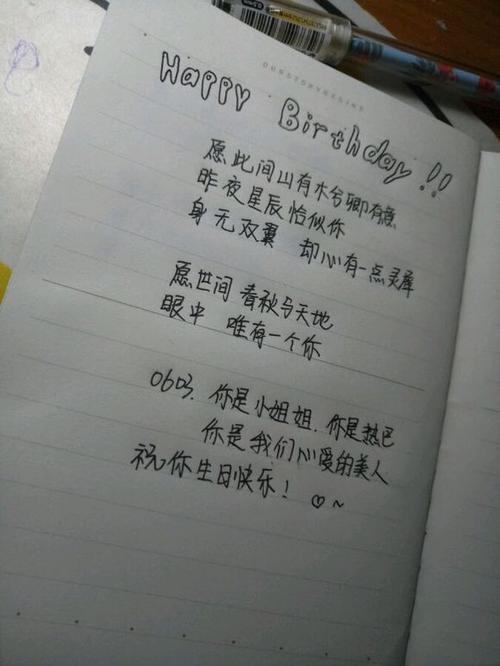 OURSTORYBEGINS
Happy Birthday!!
愿此间山有木兮卿有意
昨夜星辰恰似你
身无双翼 却心有一点灵犀
愿世间春秋与天地
眼中 唯有一个你
你是小姐姐.你是热巴
你是我们心爱的美人
祝你生日快乐! ♡~